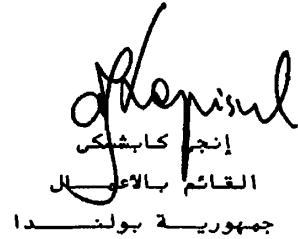 إنجي كابشكي
القائم بالأعمال
جمهورية بولندا